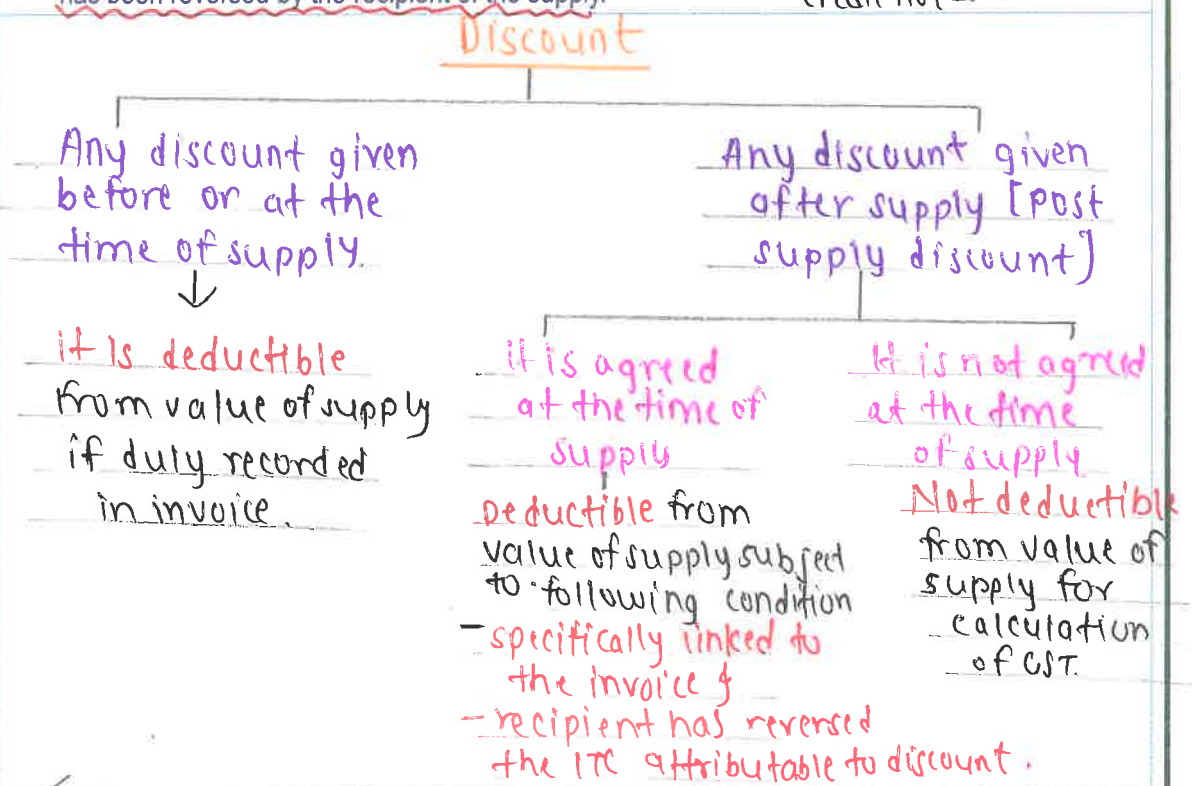 has been reversed by the recipient of the supply.
Discount
Any discount given
before or at the
time of supply.
it is deductible
from value of supply
if duly recorded
in invoice.
Any discount given
after supply [post
supply discount]
it is agreed
at the time of
supply
Deductible from
value of supply subject
to following condition
- specifically linked to
the invoice &
- recipient has reversed
the ITC attributable to discount.
It is not agreed
at the time
of supply
Not deductible
from value of
supply for
calculation
of GST.